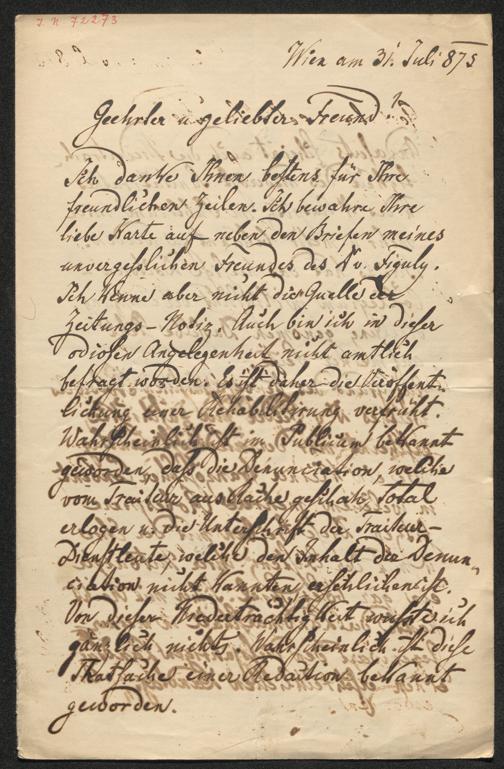 I. N 72273
Wien am 31. Juli 875
Geehrter u geliebter Freund!
Ich danke Ihnen bestens für Ihre
freundlichen Zeilen. Ich bewahre Ihre
liebe Karte auf neben den Briefen meines
unvergesslichen Freundes des Dr v. Figuly.
Ich kenne aber nicht die Quelle der
Zeitungs-Notiz. Auch bin ich in dieser
odiosen Angelegenheit nicht amtlich
befragt worden. Es ist daher die Veröffent-
lichung einer Rehabilitirung verfrüht.
Wahrscheinlich ist im Publicum bekannt
geworden, daß die Denunciation, welche
vom Traiteur aus Rache geschah, total
erlogen u. die Unterschrift der Traiteur-
Dienstleute, welche den Inhalt der Denun-
ciation nicht kannten, erschlichen ist.
Von dieser Niederträchtigkeit wußte ich
gänzlich nichts. Wahrscheinlich ist diese
Thatsache einer Redaction bekannt
geworden.